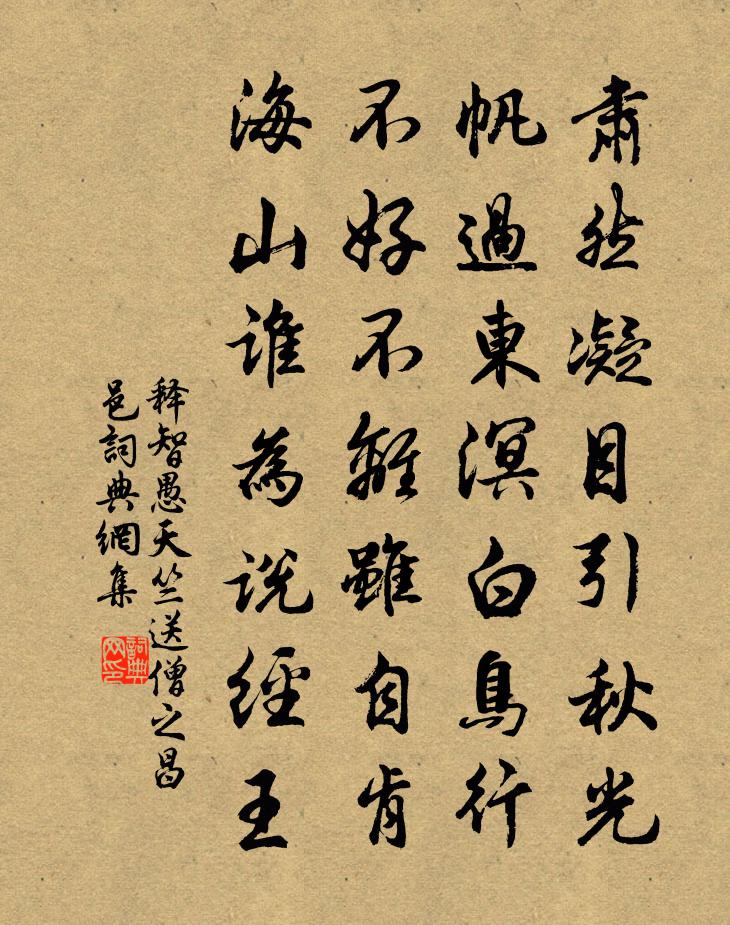 肅然凝目引秋光
帆過東溟白鳥行
不好不離雖自肯
海山誰為說經王
释智愚天竺送僧之昌
邑詞典網集
詞典
网印